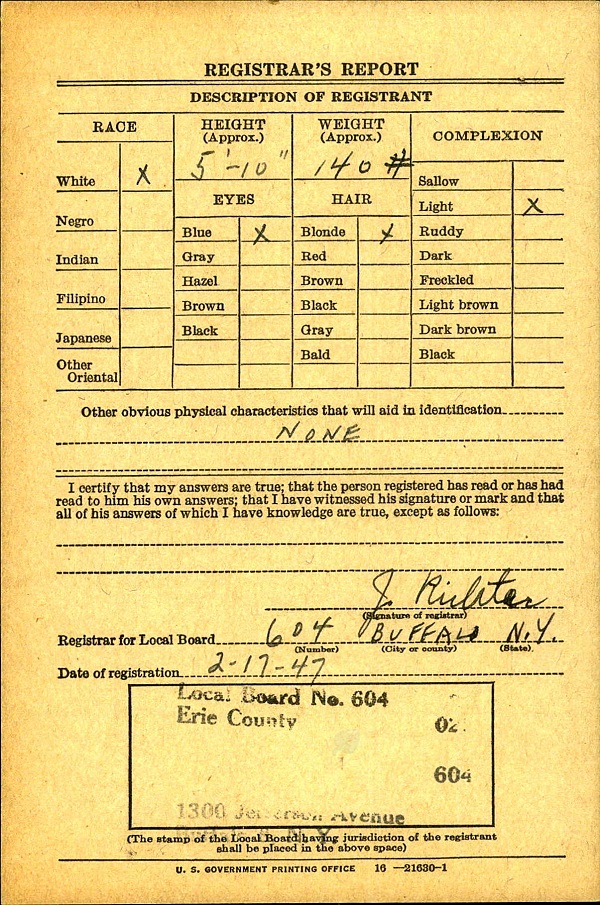 REGISTRAR'S REPORT
DESCRIPTION OF REGISTRANT
RACE
HEIGHT
(Approx.)
WEIGHT
(Approx.)
COMPLEXION
5'-10"
140 #
White X
Negro
Indian
Filipino
Japanese
Other
Oriental
EYES
Blue X
Gray
Hazel
Brown
Black
HAIR
Blonde X
Red
Brown
Black
Gray
Bald
Sallow
Light X
Ruddy
Dark
Freckled
Light brown
Dark brown
Black
Other obvious physical characteristics that will aid in identification
NONE
I certify that my answers are true; that the person registered has read or has had
read to him his own answers; that I have witnessed his signature or mark and that
all of his answers of which I have knowledge are true, except as follows:
J. Richter
(Signature of registrar)
Registrar for Local Board 604 BUFFALO N.Y.
(Number) (City or county) (State)
Date of registration 2-17-47
Local Board No. 604
Erie County 02
604
1300 Jefferson Avenue
(The stamp of the Local Board having jurisdiction of the registrant
shall be placed in the above space)
U. S. GOVERNMENT PRINTING OFFICE 16—21630-1